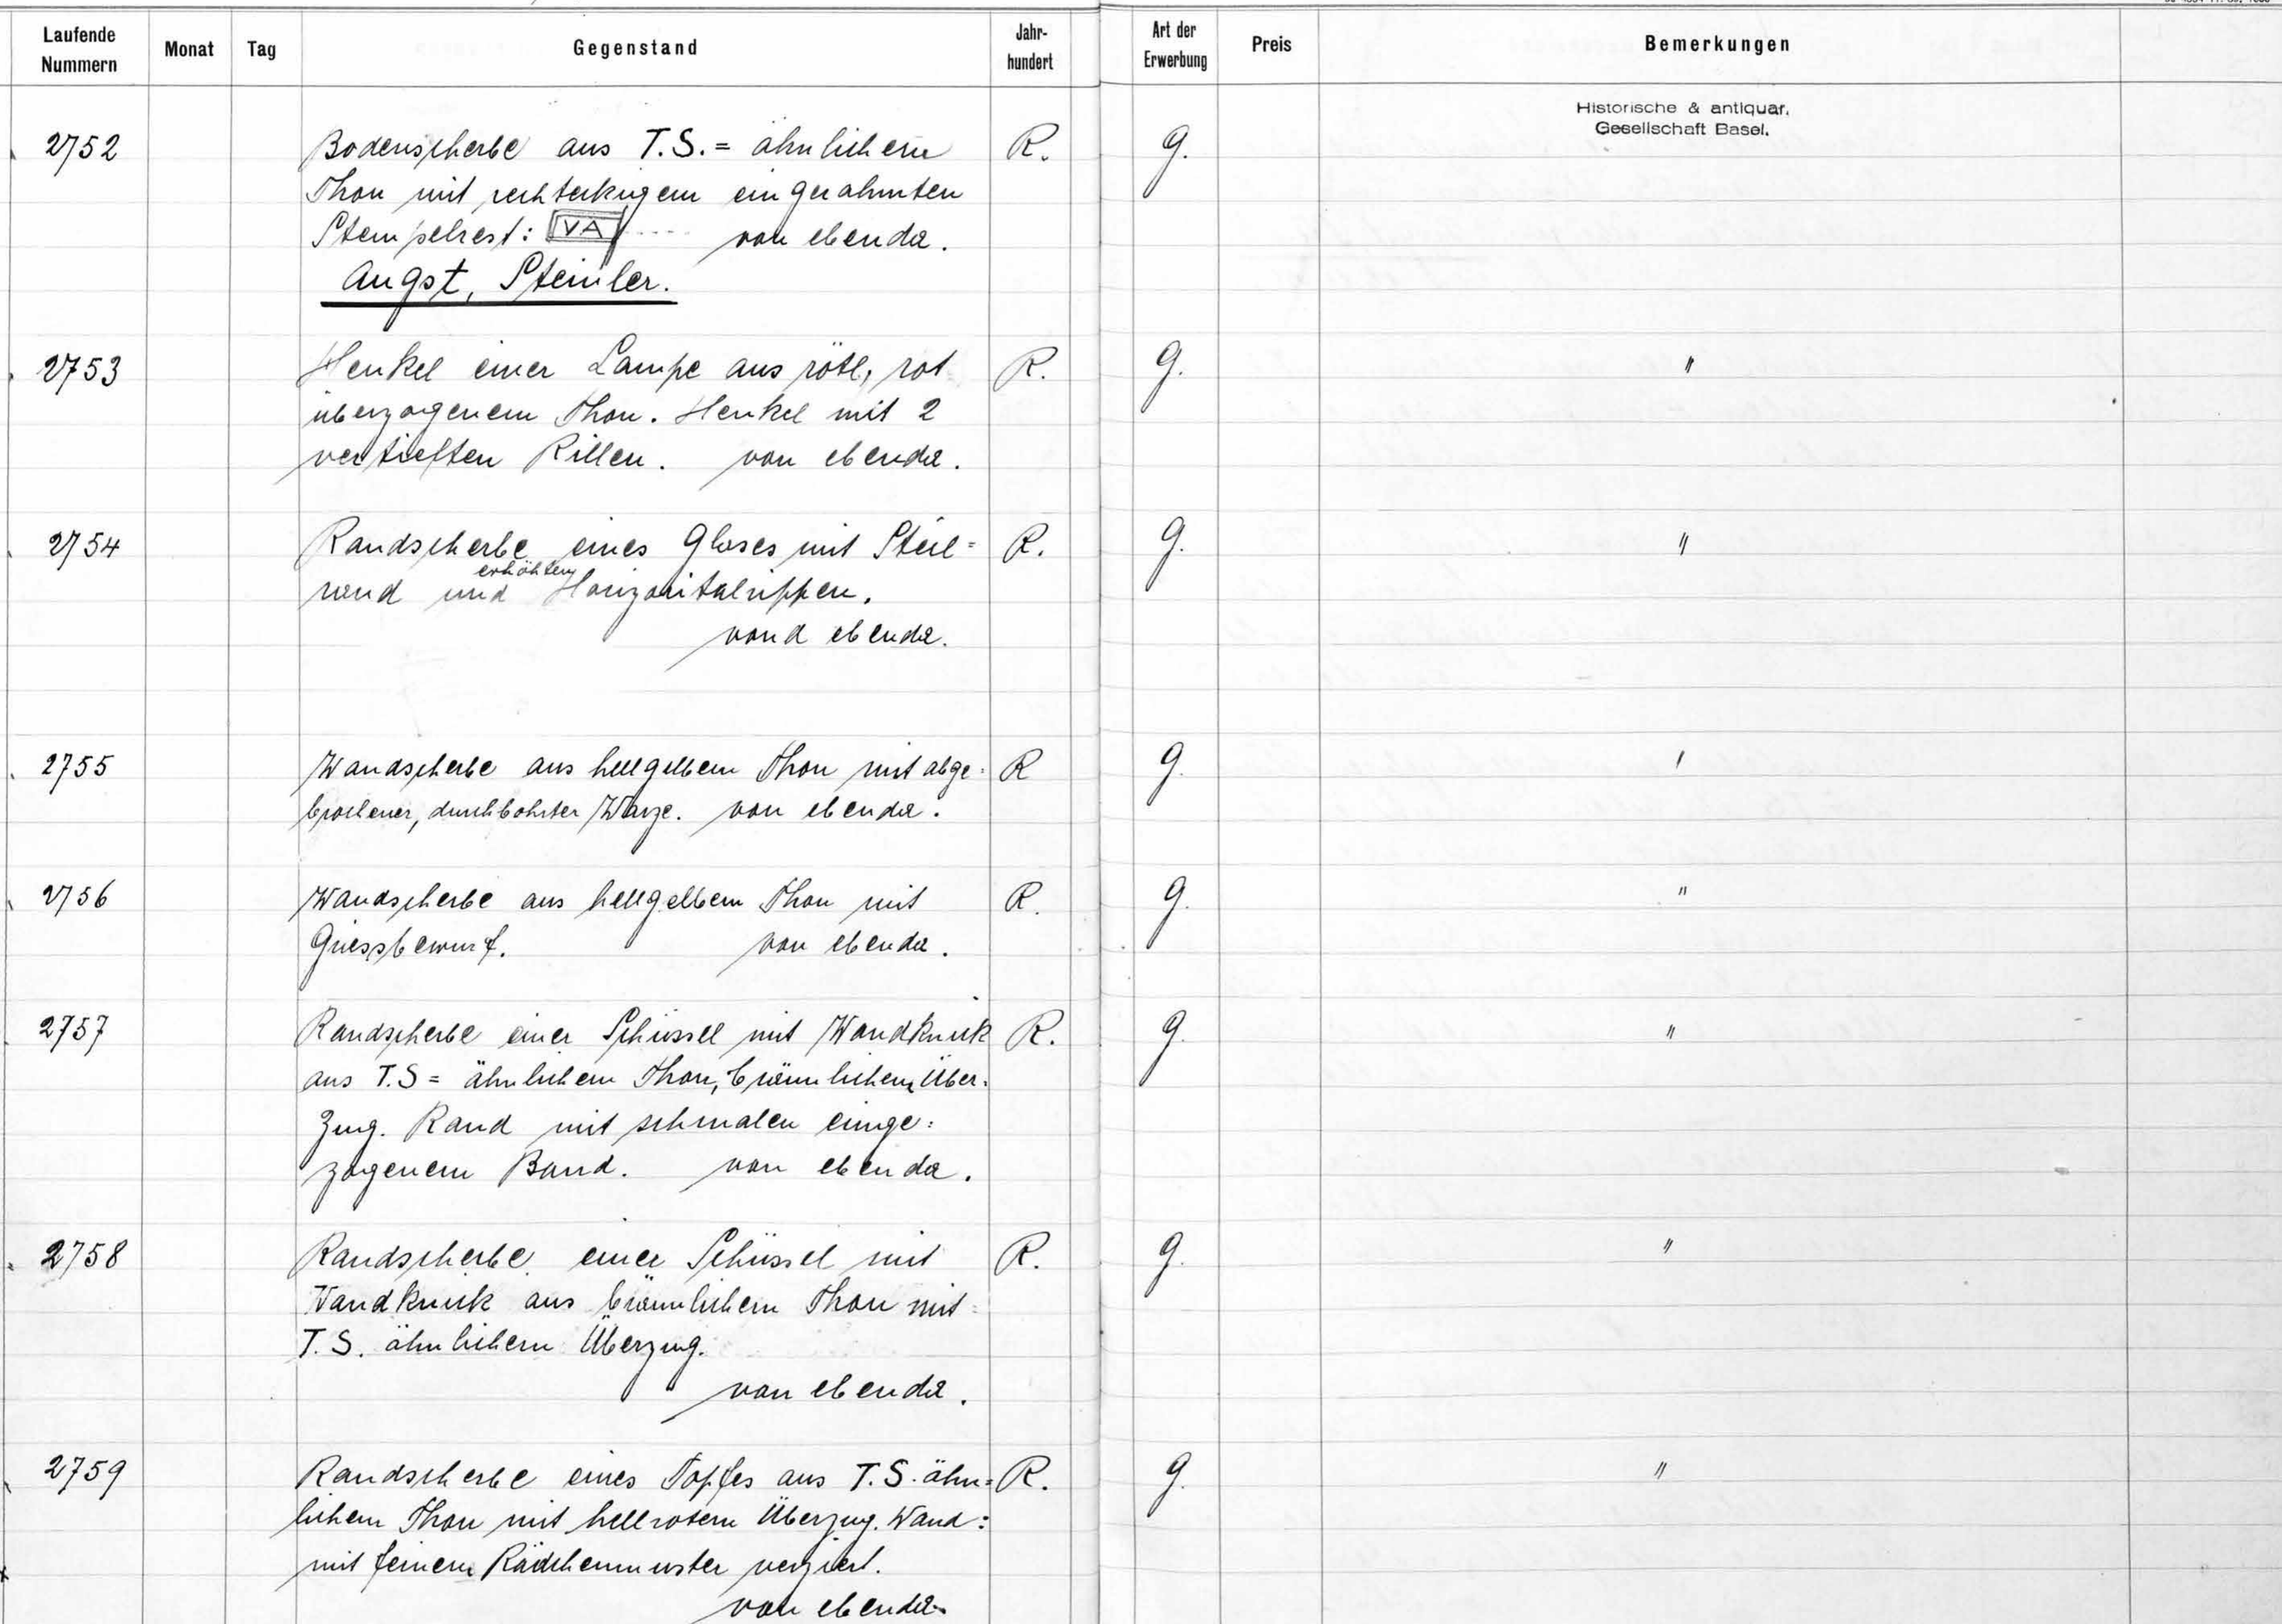 Laufende Nummern Monat Tag Gegenstand Jahr-hundert Art der Erwerbung Preis Bemerkungen
Historische & antiquar.
Gesellschaft Basel.
2752 Bodenscherbe aus T.S.= ähnlichem R. g.
Thon mit rechteckigem eingerahmten
Stempelrest: VA .... von ebenda.
Augst, Steinler.
2753 Henkel einer Lampe aus rötl, rot R. g. "
überzogenem Thon. Henkel mit 2
vertieften Rillen. von ebenda.
2754 Randscherbe eines Glases mit Steil= R. g. "
rand und erhöhten Horizontalrippen.
vond ebenda.
2755 Wandscherbe aus hellgelbem Thon mit abge= R g. '
brochener, durchbohrter Warze. von ebenda.
2756 Wandscherbe aus hellgelbem Thon mit R. g. "
Griessbewurf. von ebenda.
2757 Randscherbe einer Schüssel mit Wandknick R. g. "
aus T.S = ähnlichem Thon, bräunlichem Über=
zug. Rand mit schmalen einge=
zogenem Band. von ebenda.
2758 Randscherbe einer Schüssel mit R. g. "
Wandknick aus bräunlichem Thon mit
T.S. ähnlichem Überzug.
von ebenda.
2759 Randscherbe eines Topfes aus T.S. ähn= R. g. "
lichem Thon mit hellrotem Überzug. Wand:
mit feinem Rädchenmuster verziert.
von ebenda.